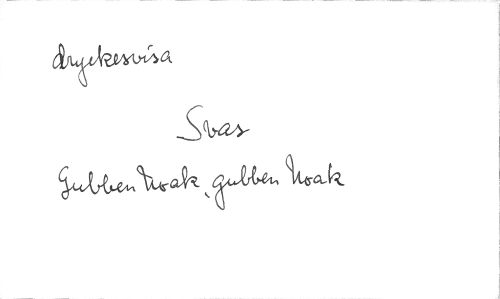 dryckesvisa
Svas
Gubben Noak, gubben Noak